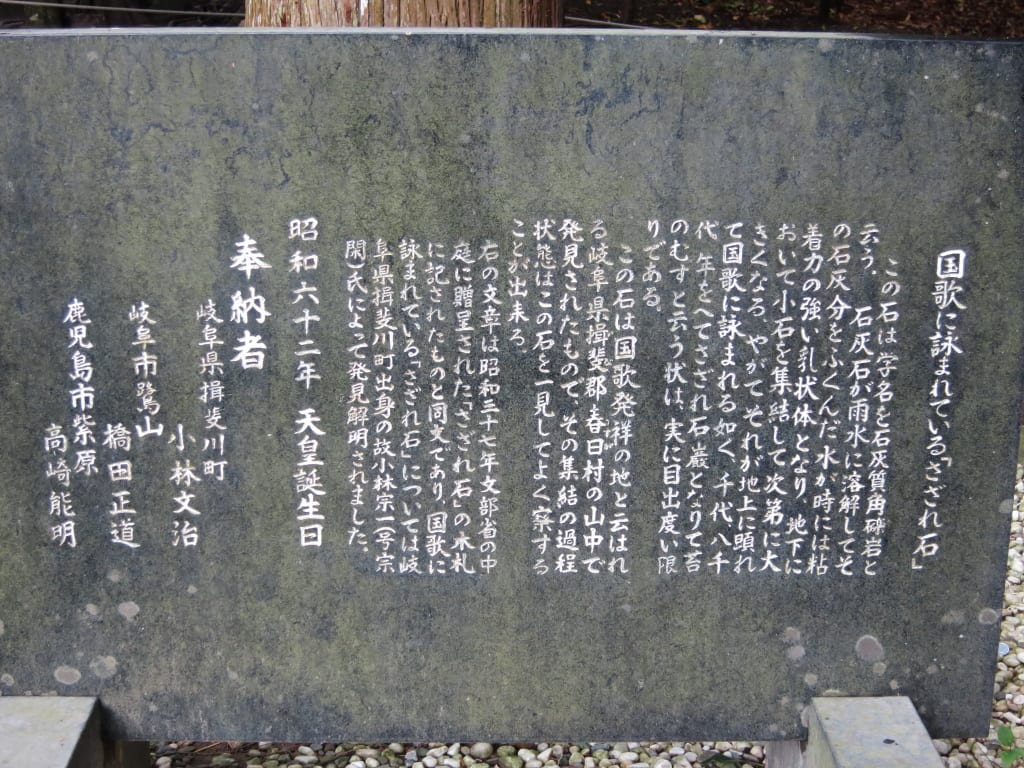 国歌に詠まれている「さざれ石」
この石は学名を石灰質角礫岩と
云う。 石灰石が雨水に溶解してそ
の石灰分をふくんだ水が時には粘
着力の強い乳状体となり、地下に
おいて小石を集結して次第に大
きくなる。やがてそれが地上に顕れ
て国歌に詠まれる如く、千代八千
代 年をへてさざれ石 巌となりて苔
のむすと云う状は、実に目出度い限
りである。
この石は国歌発祥の地と云はれ
る岐阜県揖斐郡春日村の山中で
発見されたもので、その集結の過程
状態はこの石を一見してよく察する
ことが出来る
右の文章は昭和三十七年文部省の中
庭に贈呈された「さざれ石」の木札
に記されたものと同文であり、国歌に
詠まれている「さざれ石」については岐
阜県揖斐川町出身の故小林宗一(号宗
閑)氏によって発見解明されました。
昭和六十二年 天皇誕生日
奉納者
岐阜県揖斐川町
小林文治
岐阜市鷺山
橋田正道
鹿児島市紫原
高崎能明